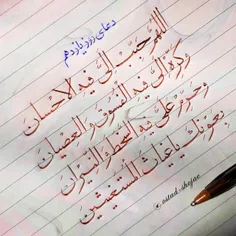 دعای روز یازدهم
اللهم حبب الیّ فیه الاحسان
وکره الیّ فیه الفسوق و العصیان
وحرم علیّ فیه السخط و النیران
بعونک یا غیاث المستغیثین
ostad.shojae